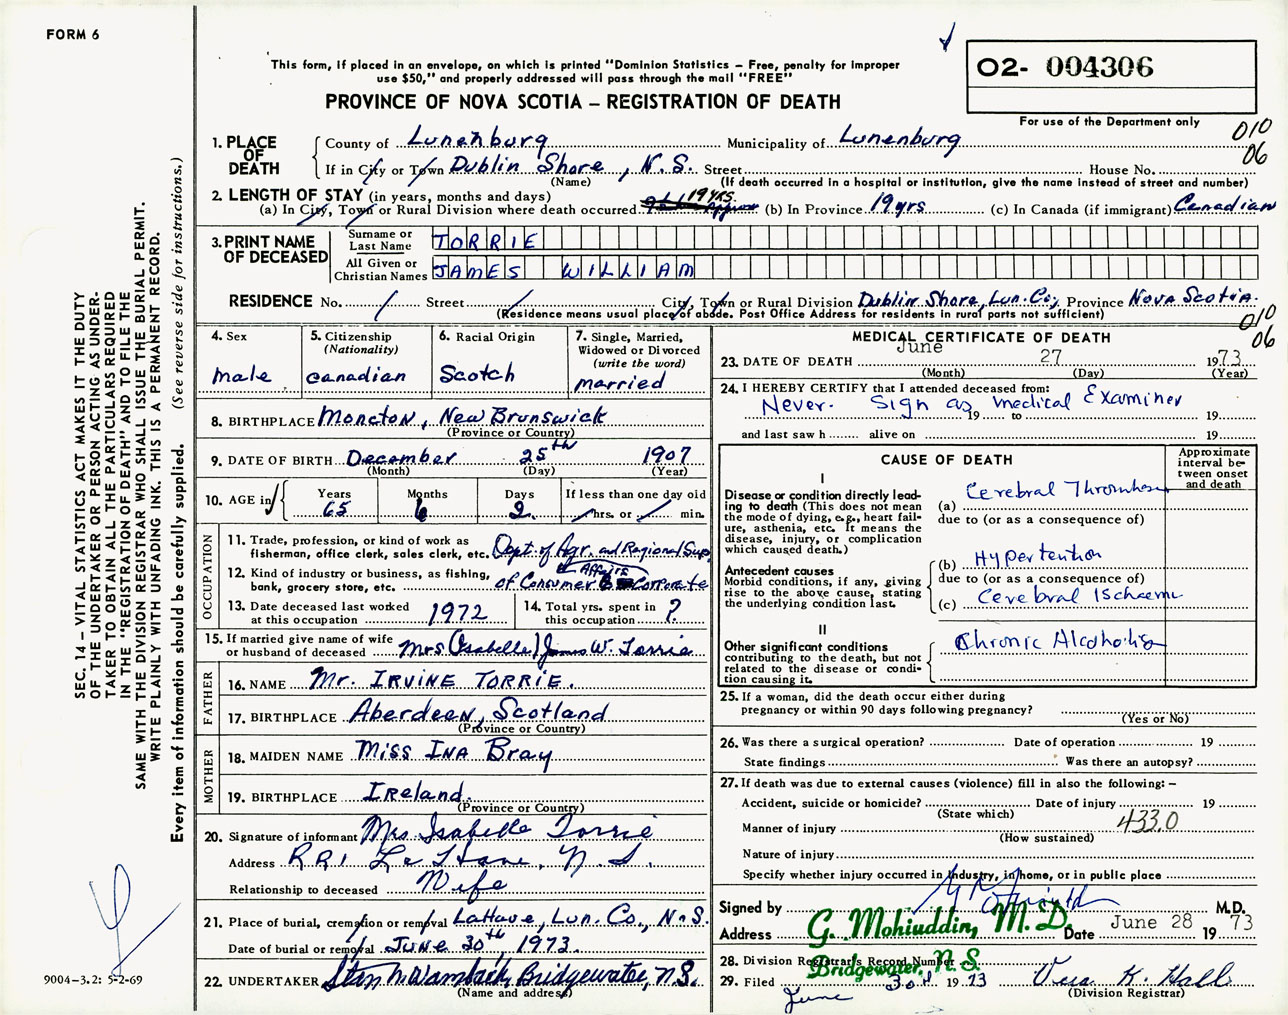 FORM 6
This form, if placed in an envelope, on which is printed "Dominion Statistics – Free, penalty for improper
use $50," and properly addressed will pass through the mail "FREE"
PROVINCE OF NOVA SCOTIA – REGISTRATION OF DEATH
02- 004306
For use of the Department only
010
06
1. PLACE OF DEATH
County of Lunenburg Municipality of Lunenburg
If in City or Town Dublin Shore, N.S. Street House No.
(Name) (If death occurred in a hospital or institution, give the name instead of street and number)
2. LENGTH OF STAY (in years, months and days)
(a) In City, Town or Rural Division where death occurred 19 yrs. (b) In Province 19 yrs (c) In Canada (if immigrant) Canadian
3. PRINT NAME OF DECEASED
Surname or Last Name TORRIE
All Given or Christian Names JAMES WILLIAM
RESIDENCE No. / Street / City, Town or Rural Division Dublin Shore, Lun. Co, Province Nova Scotia.
(Residence means usual place of abode. Post Office Address for residents in rural parts not sufficient)
010
06
4. Sex
male
5. Citizenship
(Nationality)
Canadian
6. Racial Origin
Scotch
7. Single, Married,
Widowed or Divorced
(write the word)
married
8. BIRTHPLACE Moncton, New Brunswick
(Province or Country)
9. DATE OF BIRTH December 25th 1907
(Month) (Day) (Year)
10. AGE in
Years Months Days If less than one day old
65 6 2 hrs. or min.
OCCUPATION
11. Trade, profession, or kind of work as
fisherman, office clerk, sales clerk, etc. Dept. of Agr. and Regional Sup.
12. Kind of industry or business, as fishing,
bank, grocery store, etc. of Consumer & Corporate
Affairs
13. Date deceased last worked
at this occupation 1972
14. Total yrs. spent in
this occupation ?
15. If married give name of wife
or husband of deceased Mrs (Isabelle) James W. Torrie
FATHER
16. NAME Mr. IRVINE TORRIE.
17. BIRTHPLACE Aberdeen, Scotland
(Province or Country)
MOTHER
18. MAIDEN NAME Miss INA Bray
19. BIRTHPLACE IReland.
(Province or Country)
20. Signature of informant Mrs Isabelle Torrie
Address RR1 La Have, N.S.
Relationship to deceased Wife
21. Place of burial, cremation or removal LaHave, Lun. Co., N.S.
Date of burial or removal June 30th 1973.
22. UNDERTAKER Bridgewater, N.S.
(Name and address)
MEDICAL CERTIFICATE OF DEATH
23. DATE OF DEATH June 27 1973
(Month) (Day) (Year)
24. I HEREBY CERTIFY that I attended deceased from:
Never. Sign as medical Examiner
19 to 19
and last saw h alive on 19
CAUSE OF DEATH
Approximate
interval be-
tween onset
and death
I
Disease or condition directly lead-
ing to death (This does not
mean the mode of dying, e.g., heart fail-
ure, asthenia, etc. It means the
disease, injury, or complication
which caused death.)
(a) Cerebral Thrombosis
due to (or as a consequence of)
Antecedent causes
Morbid conditions, if any, giving
rise to the above cause, stating
the underlying condition last.
(b) Hypertention
due to (or as a consequence of)
(c) Cerebral Ischaemi
II
Other significant conditions
contributing to the death, but not
related to the disease or condi-
tion causing it.
Chronic Alcoholism
25. If a woman, did the death occur either during
pregnancy or within 90 days following pregnancy?
(Yes or No)
26. Was there a surgical operation? Date of operation 19
State findings Was there an autopsy?
27. If death was due to external causes (violence) fill in also the following: –
Accident, suicide or homicide? Date of injury 19
(State which)
Manner of injury 433.0
(How sustained)
Nature of injury
Specify whether injury occurred in industry, in home, or in public place
Signed by M.D.
G. Mohiuddin, M.D.
Address Date June 28 1973
Bridgewater, N.S.
28. Division Registrar's Record Number
29. Filed June 30th 1973 Vera K. Hall
(Division Registrar)
SEC. 14 – VITAL STATISTICS ACT MAKES IT THE DUTY
OF THE UNDERTAKER OR PERSON ACTING AS UNDER-
TAKER TO OBTAIN ALL THE PARTICULARS REQUIRED
IN THE "REGISTRATION OF DEATH" AND TO FILE THE
SAME WITH THE DIVISION REGISTRAR WHO SHALL ISSUE THE BURIAL PERMIT.
WRITE PLAINLY WITH UNFADING INK. THIS IS A PERMANENT RECORD.
Every item of information should be carefully supplied. (See reverse side for instructions.)
9004-3.2: 5-2-69